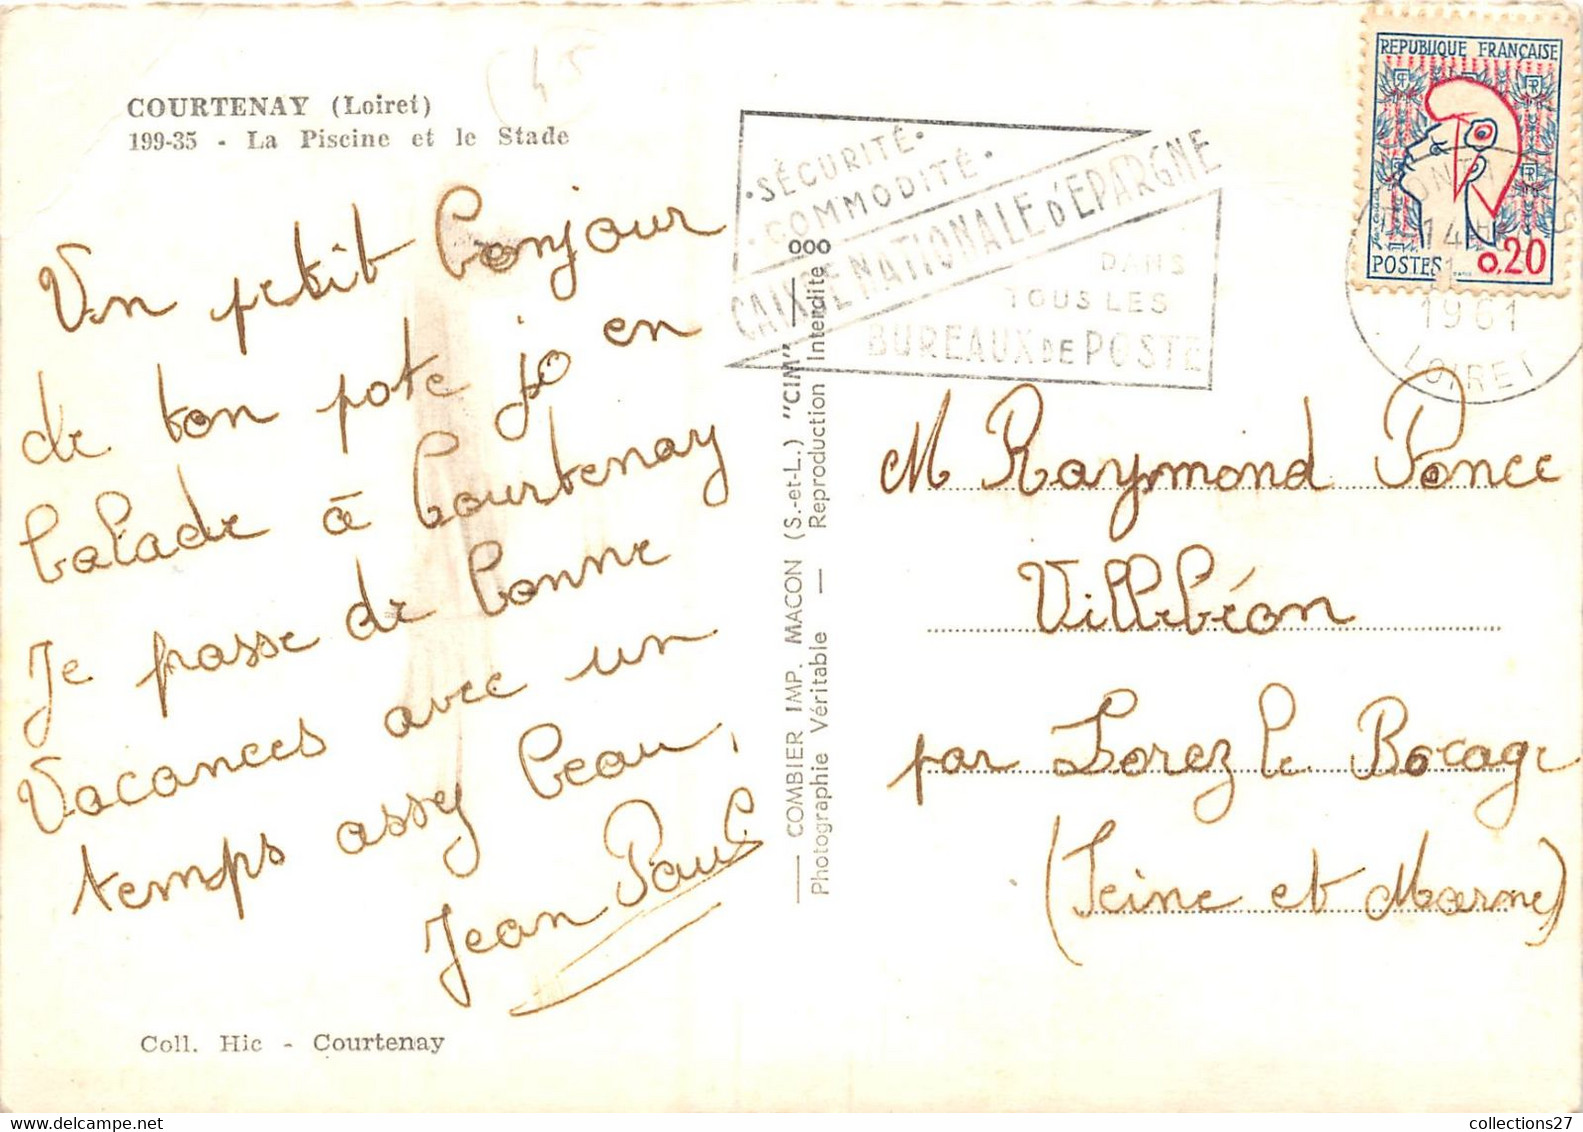 COURTENAY (Loiret)
199-35 - La Piscine et le Stade
45
Un petit bonjour
de ton pote jo en
balade à Courtenay
Je passe de bonne
vacances avec un
temps assez beau,
Jean Paul
Coll. Hic - Courtenay
COMBIER IMP. MACON (S.-et-L.) "CIM"
Photographie Véritable — Reproduction Interdite
ooo
•SÉCURITÉ•
•COMMODITÉ•
CAISSE NATIONALE d'ÉPARGNE
DANS
TOUS LES
BUREAUX DE POSTE
REPUBLIQUE FRANÇAISE
POSTES 0,20
14
1961
LOIRET
M Raymond Ponce
Villebéon
par Lorez le Bocage
(Seine et Marne)
collections27